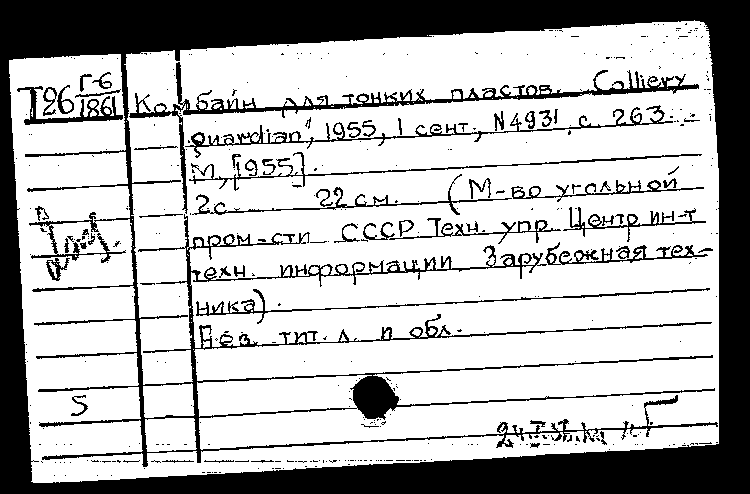 Т26 Г-6/1861 Комбайн для тонких пластов. "Colliery
guardian", 1955, 1 сент., N4931, с. 263.
М., [1955].
2с. 22 см. (М-во угольной
пром-сти СССР Техн. упр. Центр. ин-т
техн. информации. Зарубежная тех-
ника).
Без тит. л. и обл.
S